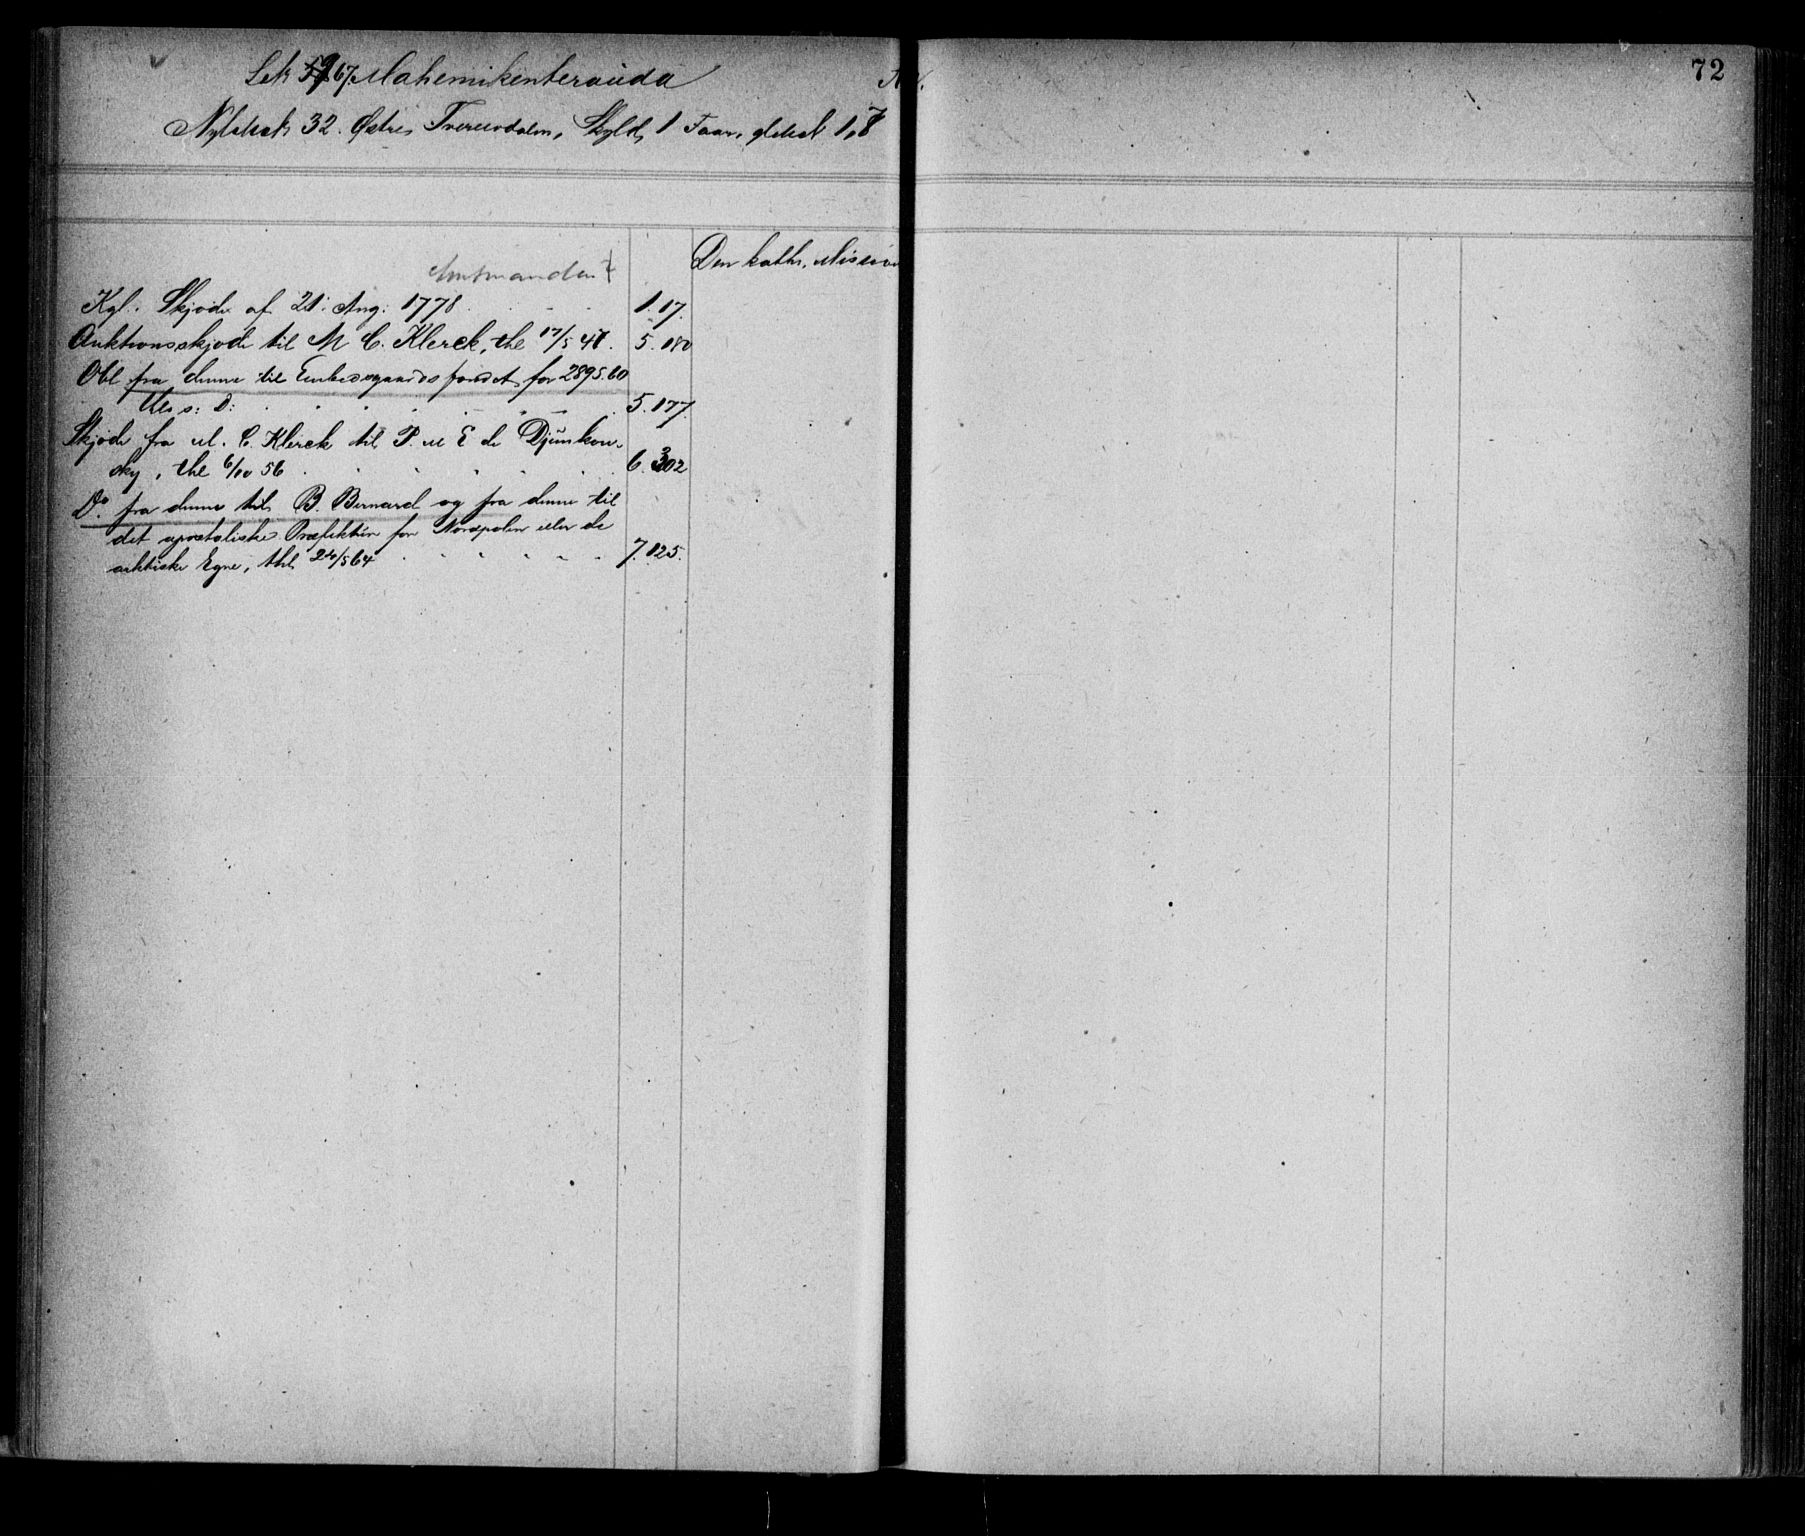 72
Mahemikenteranda
32. Østre Tverelvdalen, Skyld, 1 1,8
Den kath. Mission
Amtmanden
Kgl. Skjøde af 21. Aug: 1778 1.17.
Auktionsskjøde til M C. Klerck, thl 17/5 47. 5.180
Obl fra denne til Embedsgaardsfondet for 2895.60
thls: D: 5.177.
Skjøde fra M. C. Klerck til P. M E de Djunkow-
sky, thl 6/10 56 6.302
Do. fra denne til B. Bernard og fra denne til
det apostoliske Præfektur for Nordpolen eller de
arktiske Egne, thl 24/5 64 7.125.